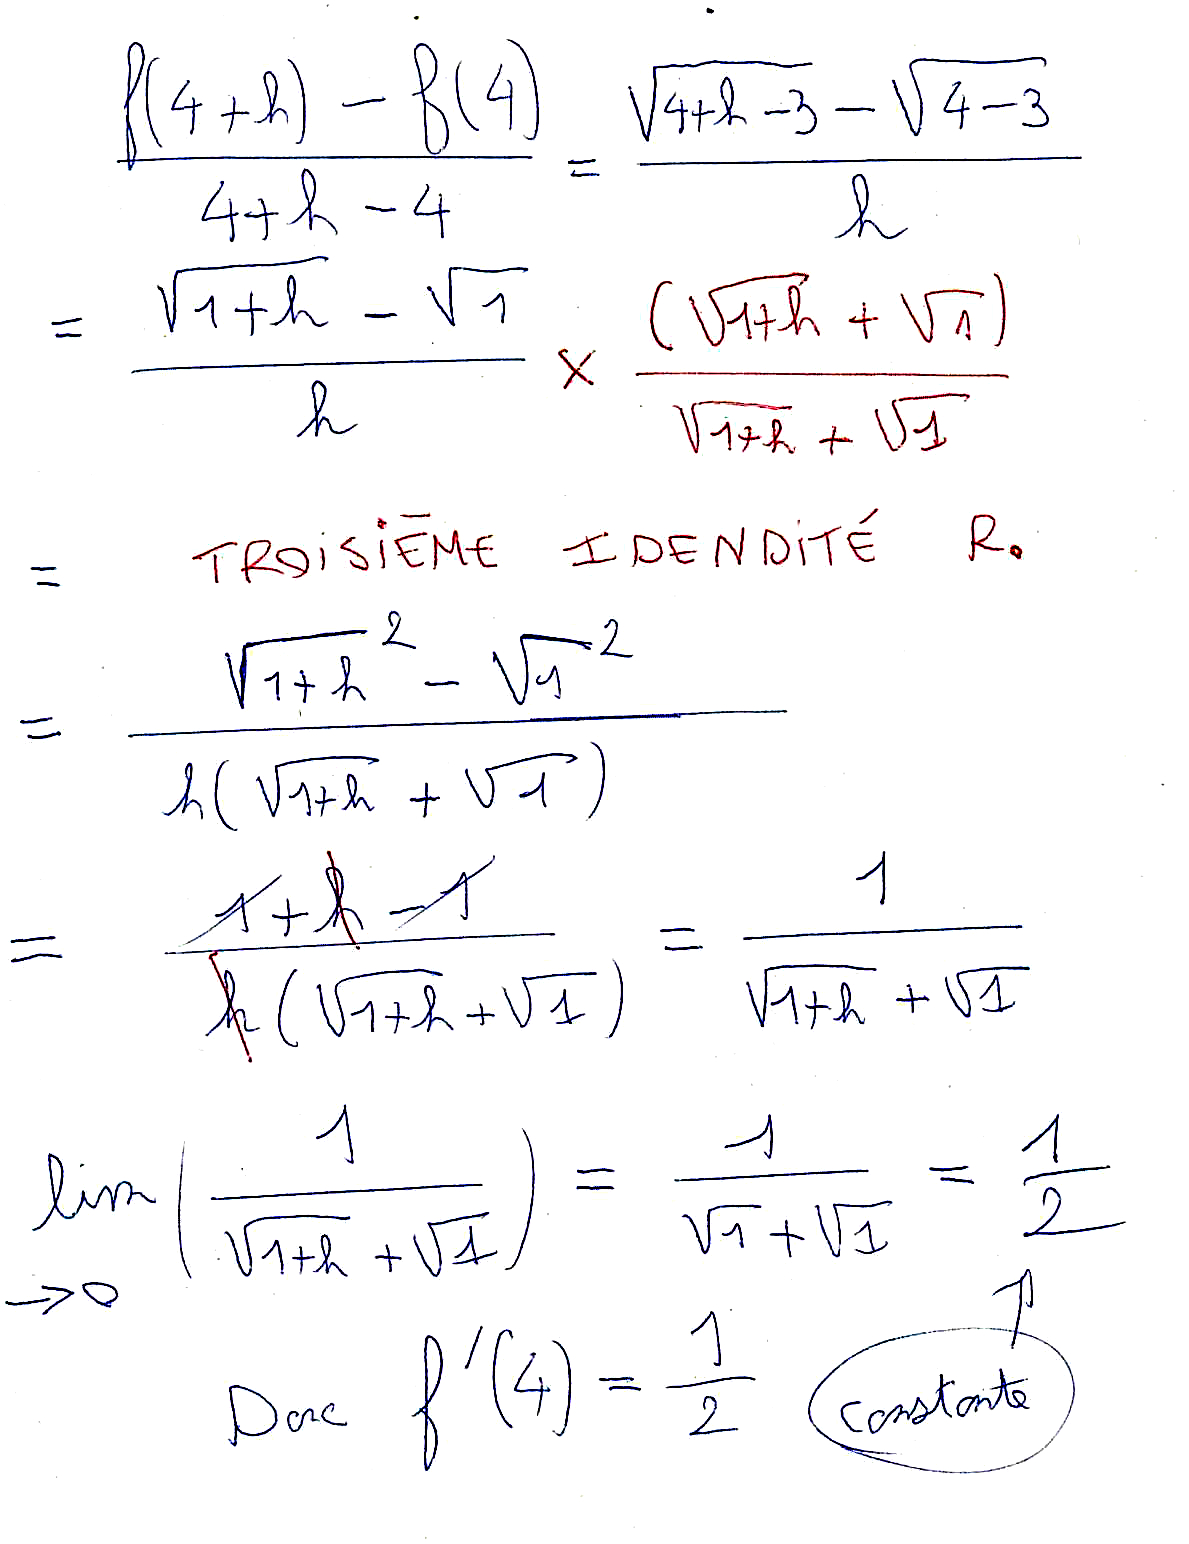 (f(4+h) - f(4))/(4+h-4) = (√(4+h-3) - √(4-3))/h
= (√(1+h) - √1)/h × (√(1+h) + √1)/(√(1+h) + √1)
= TROISIĒME IDENDITÉ R.
= (√(1+h)² - √1²)/(h(√(1+h) + √1))
= (1+h-1)/(h(√(1+h)+√1)) = 1/(√(1+h) + √1)
lim →0 (1/(√(1+h) + √1)) = 1/(√1+√1) = 1/2
↑
Donc f'(4) = 1/2 constante